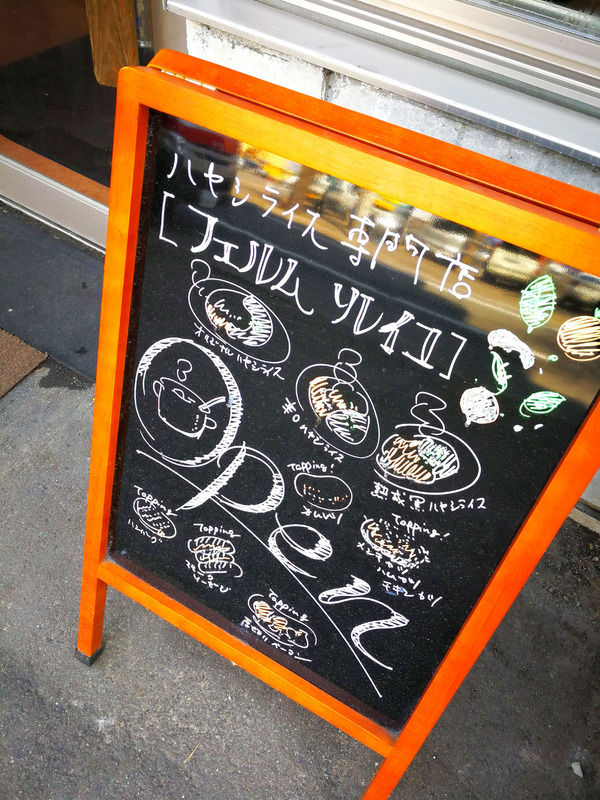 ハヤシライス 専門店
[フェルム ソレイユ]
オリジナルハヤシライス
黒のハヤシライス
熟成黒ハヤシライス
Open
Topping!
オムレツ
Topping!
メンチカツ
ハムカツ
チキンカツ
Topping
Topping
Topping
ベーコン